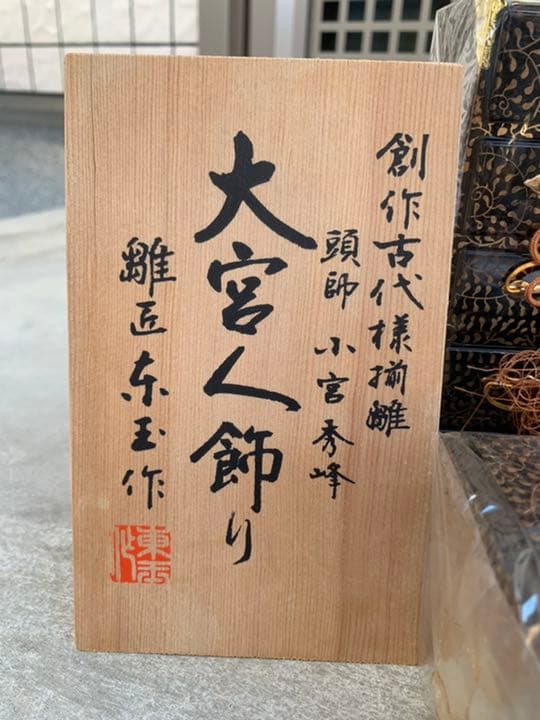 創作古代様揃雛
頭師 小宮秀峰
大宮人飾り
雛匠東玉作
東玉